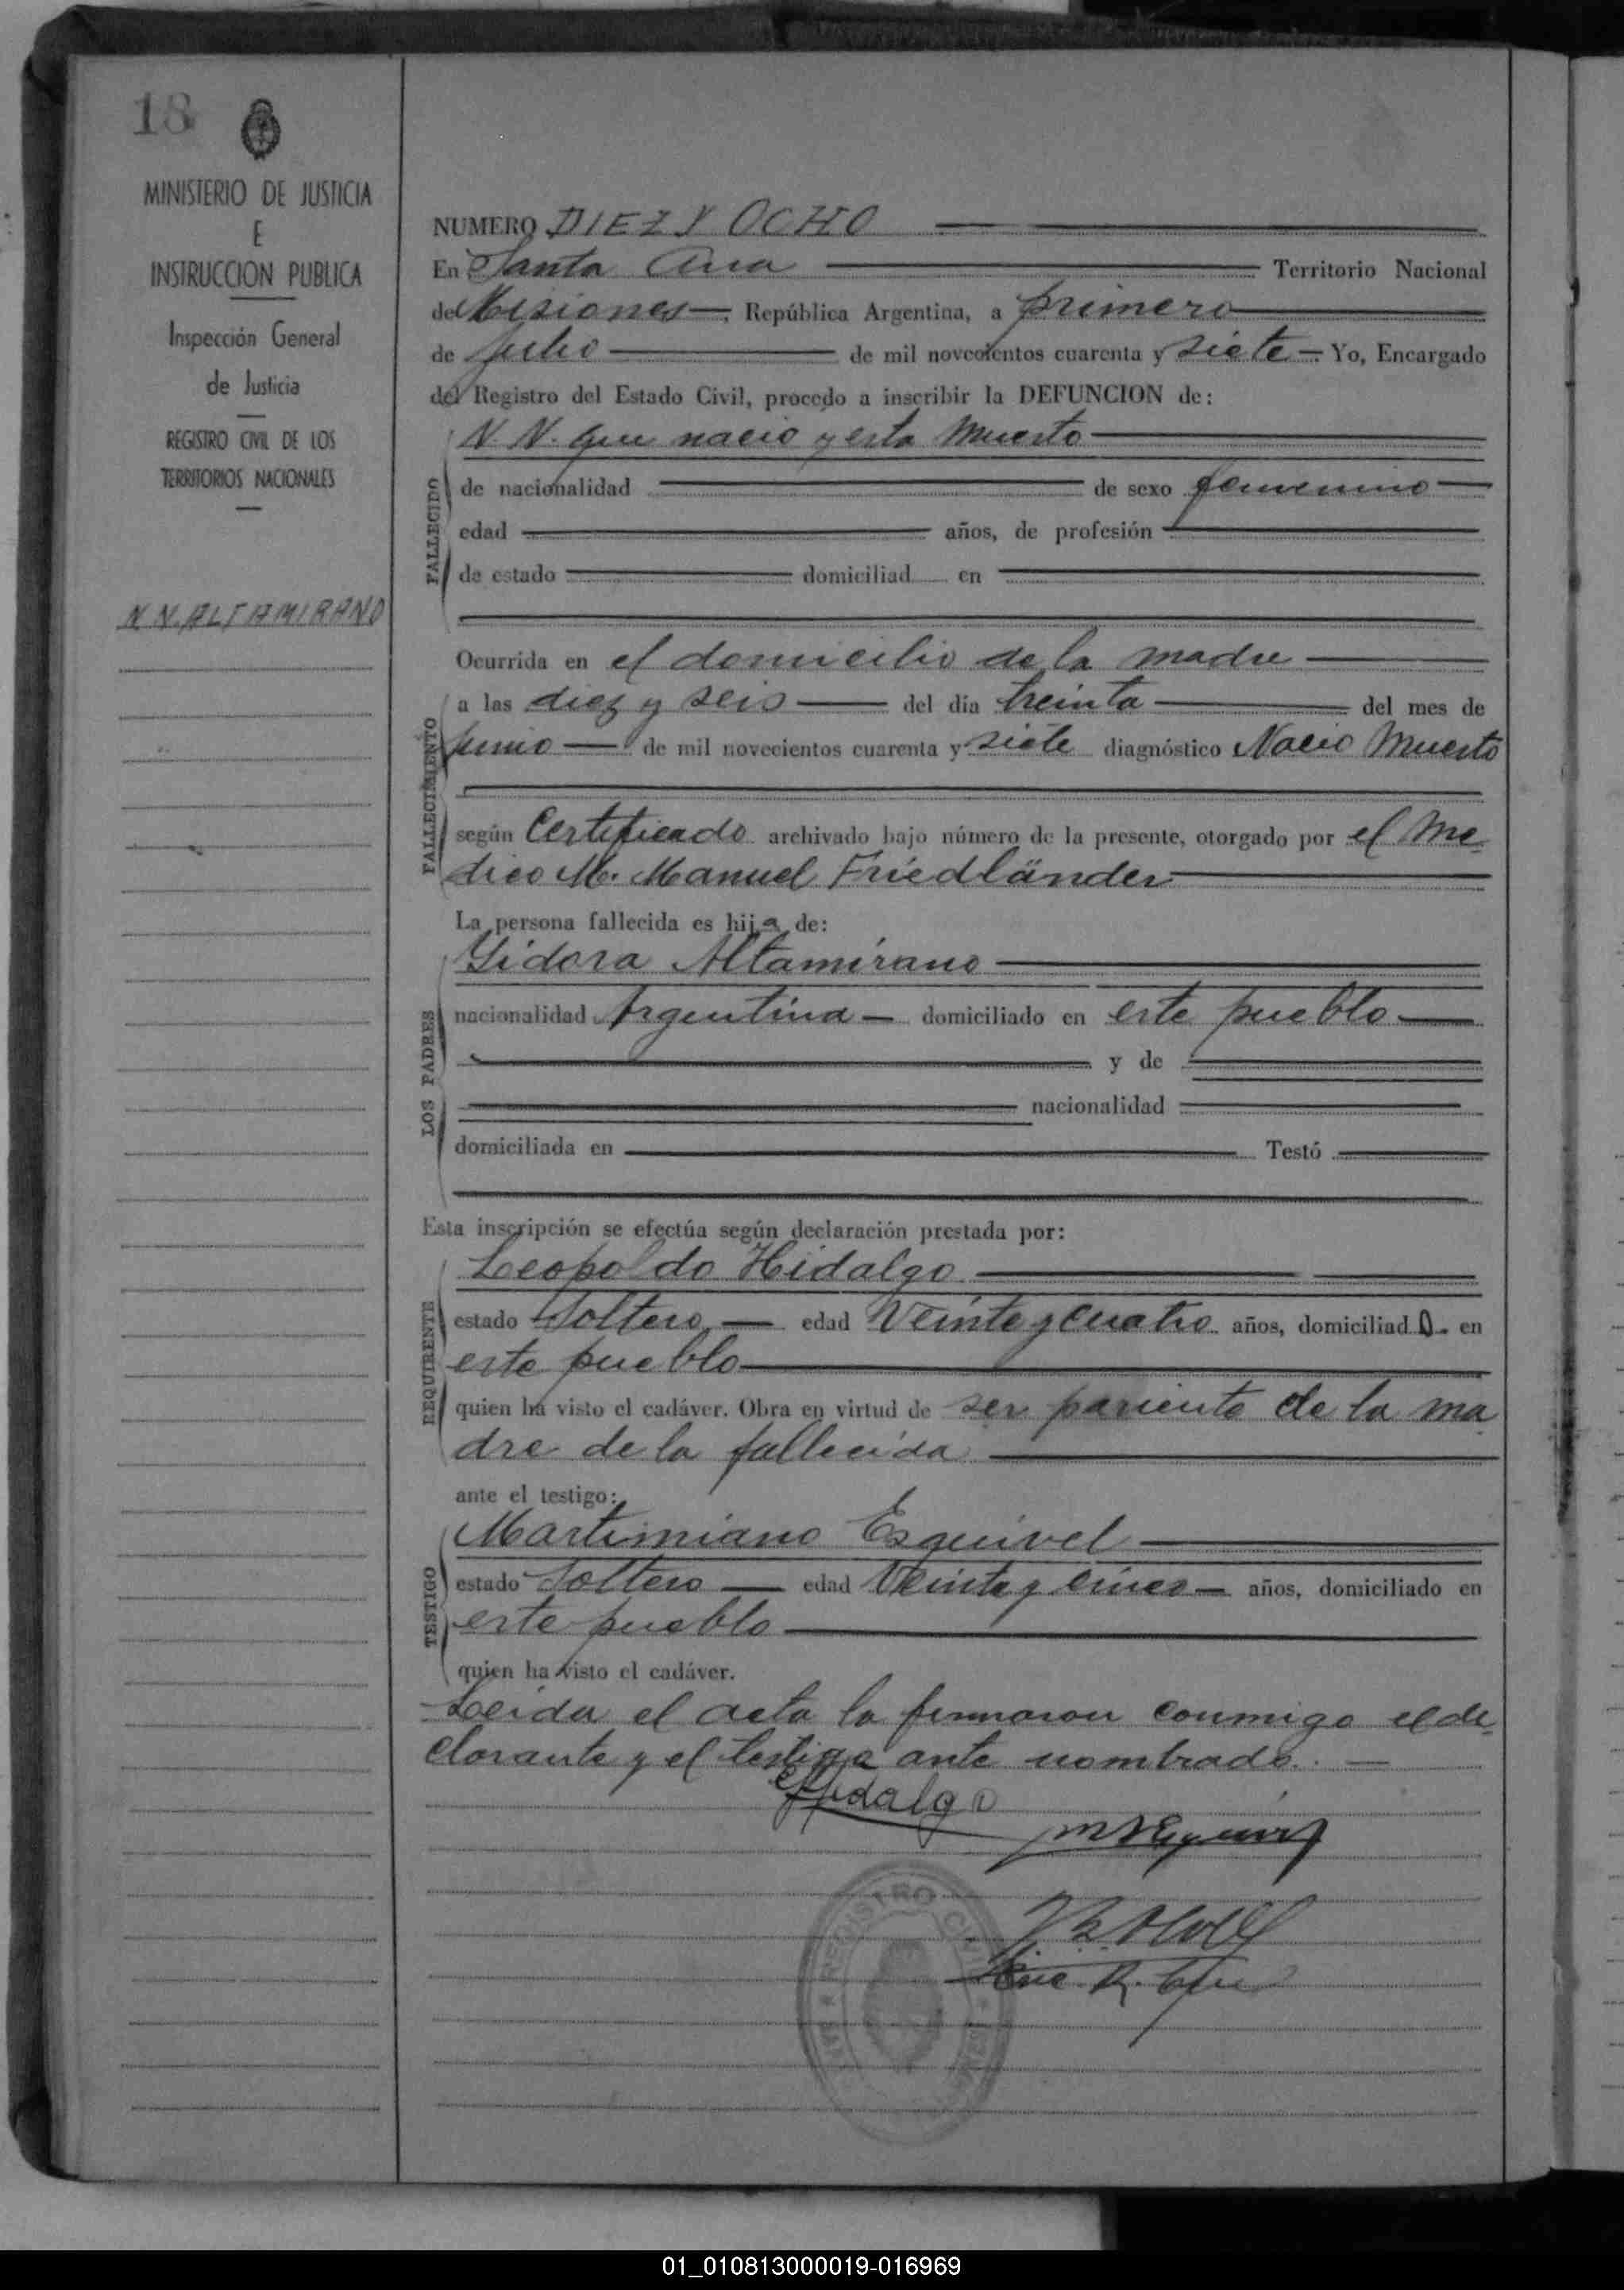 18
MINISTERIO DE JUSTICIA
E
INSTRUCCION PUBLICA
Inspección General
de Justicia
REGISTRO CIVIL DE LOS
TERRITORIOS NACIONALES
N N. ALTAMIRANO
NUMERO DIEZ Y OCHO
En Santa Ana Territorio Nacional
de Misiones, República Argentina, a primero
de Julio de mil novecientos cuarenta y siete Yo, Encargado
del Registro del Estado Civil, procedo a inscribir la DEFUNCION de:
N. N. que nacio y esta Muerto
FALLECIDO
de nacionalidad de sexo femenino
edad años, de profesión
de estado domiciliad en
Ocurrida en el domicilio de la madre
FALLECIMIENTO
a las diez y seis del día treinta del mes de
Junio de mil novecientos cuarenta y siete diagnóstico Nacio Muerto
según Certificado archivado bajo número de la presente, otorgado por el Me-
dico M. Manuel Friedländer
La persona fallecida es hija de:
LOS PADRES
Ysidora Altamirano
nacionalidad Argentina domiciliado en este pueblo
y de
nacionalidad
domiciliada en Testó
Esta inscripción se efectúa según declaración prestada por:
REQUIRENTE
Leopoldo Hidalgo
estado Soltero edad Veinte y cuatro años, domiciliado en
este pueblo
quien ha visto el cadáver. Obra en virtud de ser pariente de la ma
dre de la fallecida
ante el testigo:
TESTIGO
Martimiano Esquivel
estado Soltero edad Veinte y cinco años, domiciliado en
este pueblo
quien ha visto el cadáver.
Leida el acta la firmaron conmigo el de-
clarante y el testigo ante nombrado.
Hidalgo
REGISTRO CIVIL
01_010813000019-016969